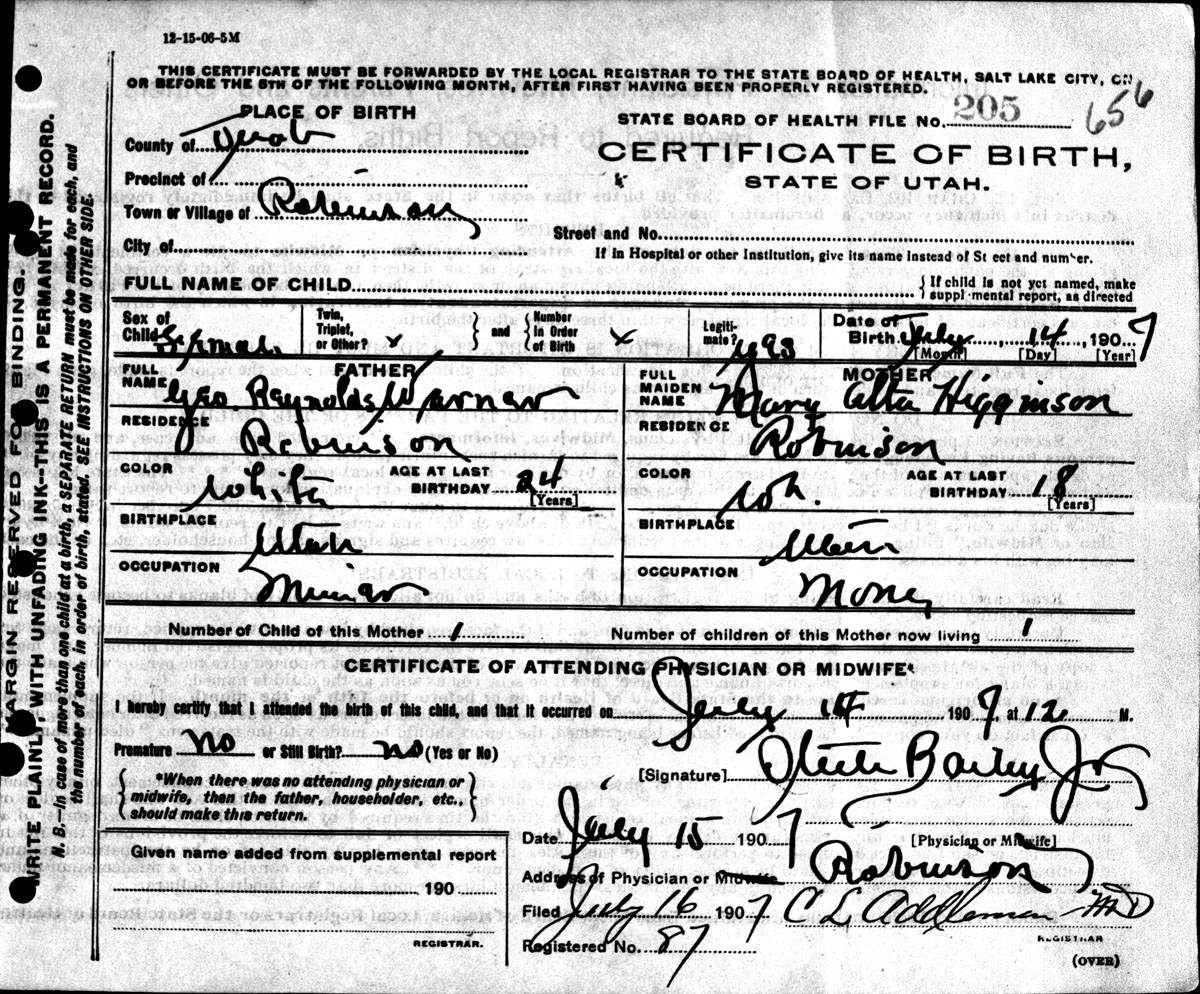 12-15-06-5M
THIS CERTIFICATE MUST BE FORWARDED BY THE LOCAL REGISTRAR TO THE STATE BOARD OF HEALTH, SALT LAKE CITY, ON
OR BEFORE THE 5TH OF THE FOLLOWING MONTH, AFTER FIRST HAVING BEEN PROPERLY REGISTERED.
PLACE OF BIRTH
STATE BOARD OF HEALTH FILE No. 205 656
County of Juab
CERTIFICATE OF BIRTH,
STATE OF UTAH.
Precinct of
Town or Village of Robinson
Street and No.
City of
If in Hospital or other Institution, give its name instead of St eet and number.
FULL NAME OF CHILD
If child is not yet named, make
suppl mental report, as directed
Sex of Child Female
Twin, Triplet, or Other? x and Number in Order of Birth x
Legiti- mate? yes
Date of Birth July 14, 1907
[Month] [Day] [Year]
FATHER
FULL NAME Geo Reynolds Warner
RESIDENCE Robinson
COLOR White AGE AT LAST BIRTHDAY 24 [Years]
BIRTHPLACE Utah
OCCUPATION Miner
MOTHER
FULL MAIDEN NAME Mary Alta Higginson
RESIDENCE Robinson
COLOR Wh. AGE AT LAST BIRTHDAY 18 [Years]
BIRTHPLACE Utah
OCCUPATION None
Number of Child of this Mother 1
Number of children of this Mother now living 1
CERTIFICATE OF ATTENDING PHYSICIAN OR MIDWIFE*
I hereby certify that I attended the birth of this child, and that it occurred on July 14 1907 at 12 M.
Premature No or Still Birth? No (Yes or No)
*When there was no attending physician or
midwife, then the father, householder, etc.,
should make this return.
[Signature] Steele Bailey Jr
[Physician or Midwife]
Date July 15 1907
Address of Physician or Midwife Robinson
Filed July 16 1907 C L Addleman MD
REGISTRAR
Registered No. 87
(OVER)
Given name added from supplemental report
190
REGISTRAR.
MARGIN RESERVED FOR BINDING.
WRITE PLAINLY, WITH UNFADING INK—THIS IS A PERMANENT RECORD.
N. B.—In case of more than one child at a birth, a SEPARATE RETURN must be made for each, and
the number of each, in order of birth, stated. SEE INSTRUCTIONS ON OTHER SIDE.